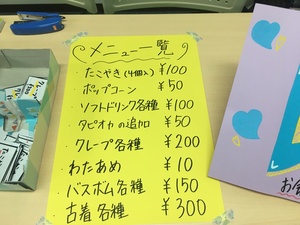 メニュー一覧
・たこやき(4個入) ¥100
・ポップコーン ¥50
・ソフトドリンク各種 ¥100
・タピオカの追加 ¥50
・クレープ各種 ¥200
・わたあめ ¥10
・バスボム各種 ¥150
古着各種 ¥300
お会